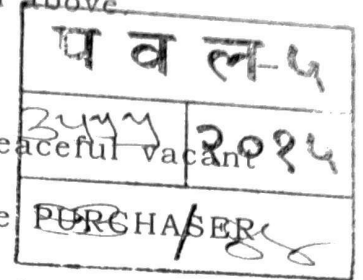 above.
प व ल-५
३५५५ २०१५
eaceful vacant
e PURCHASER